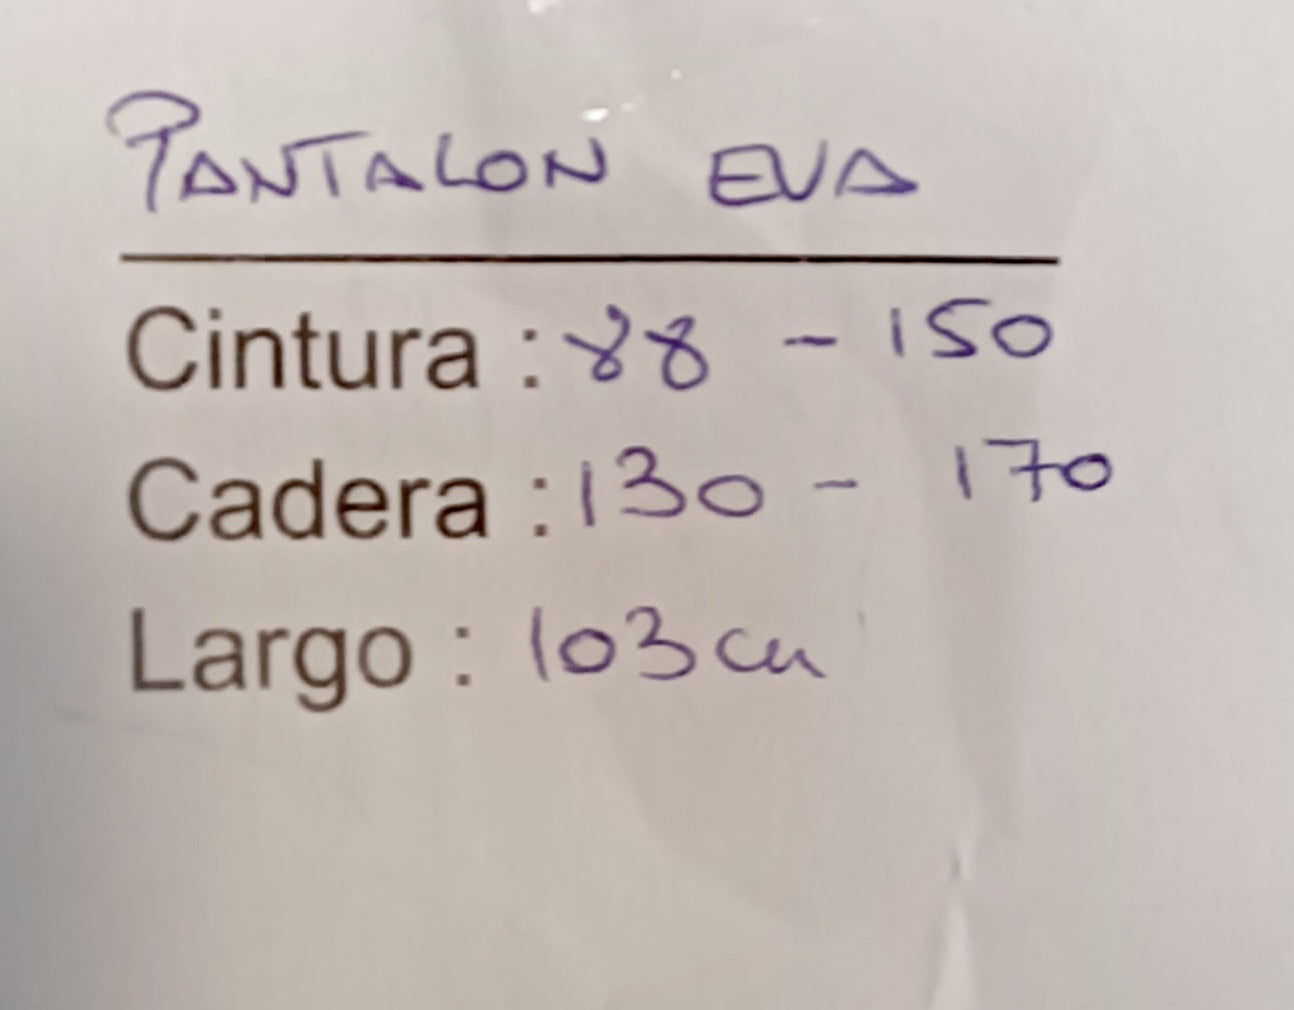 PANTALON EVA
Cintura : 88 - 150
Cadera : 130 - 170
Largo : 103 cm